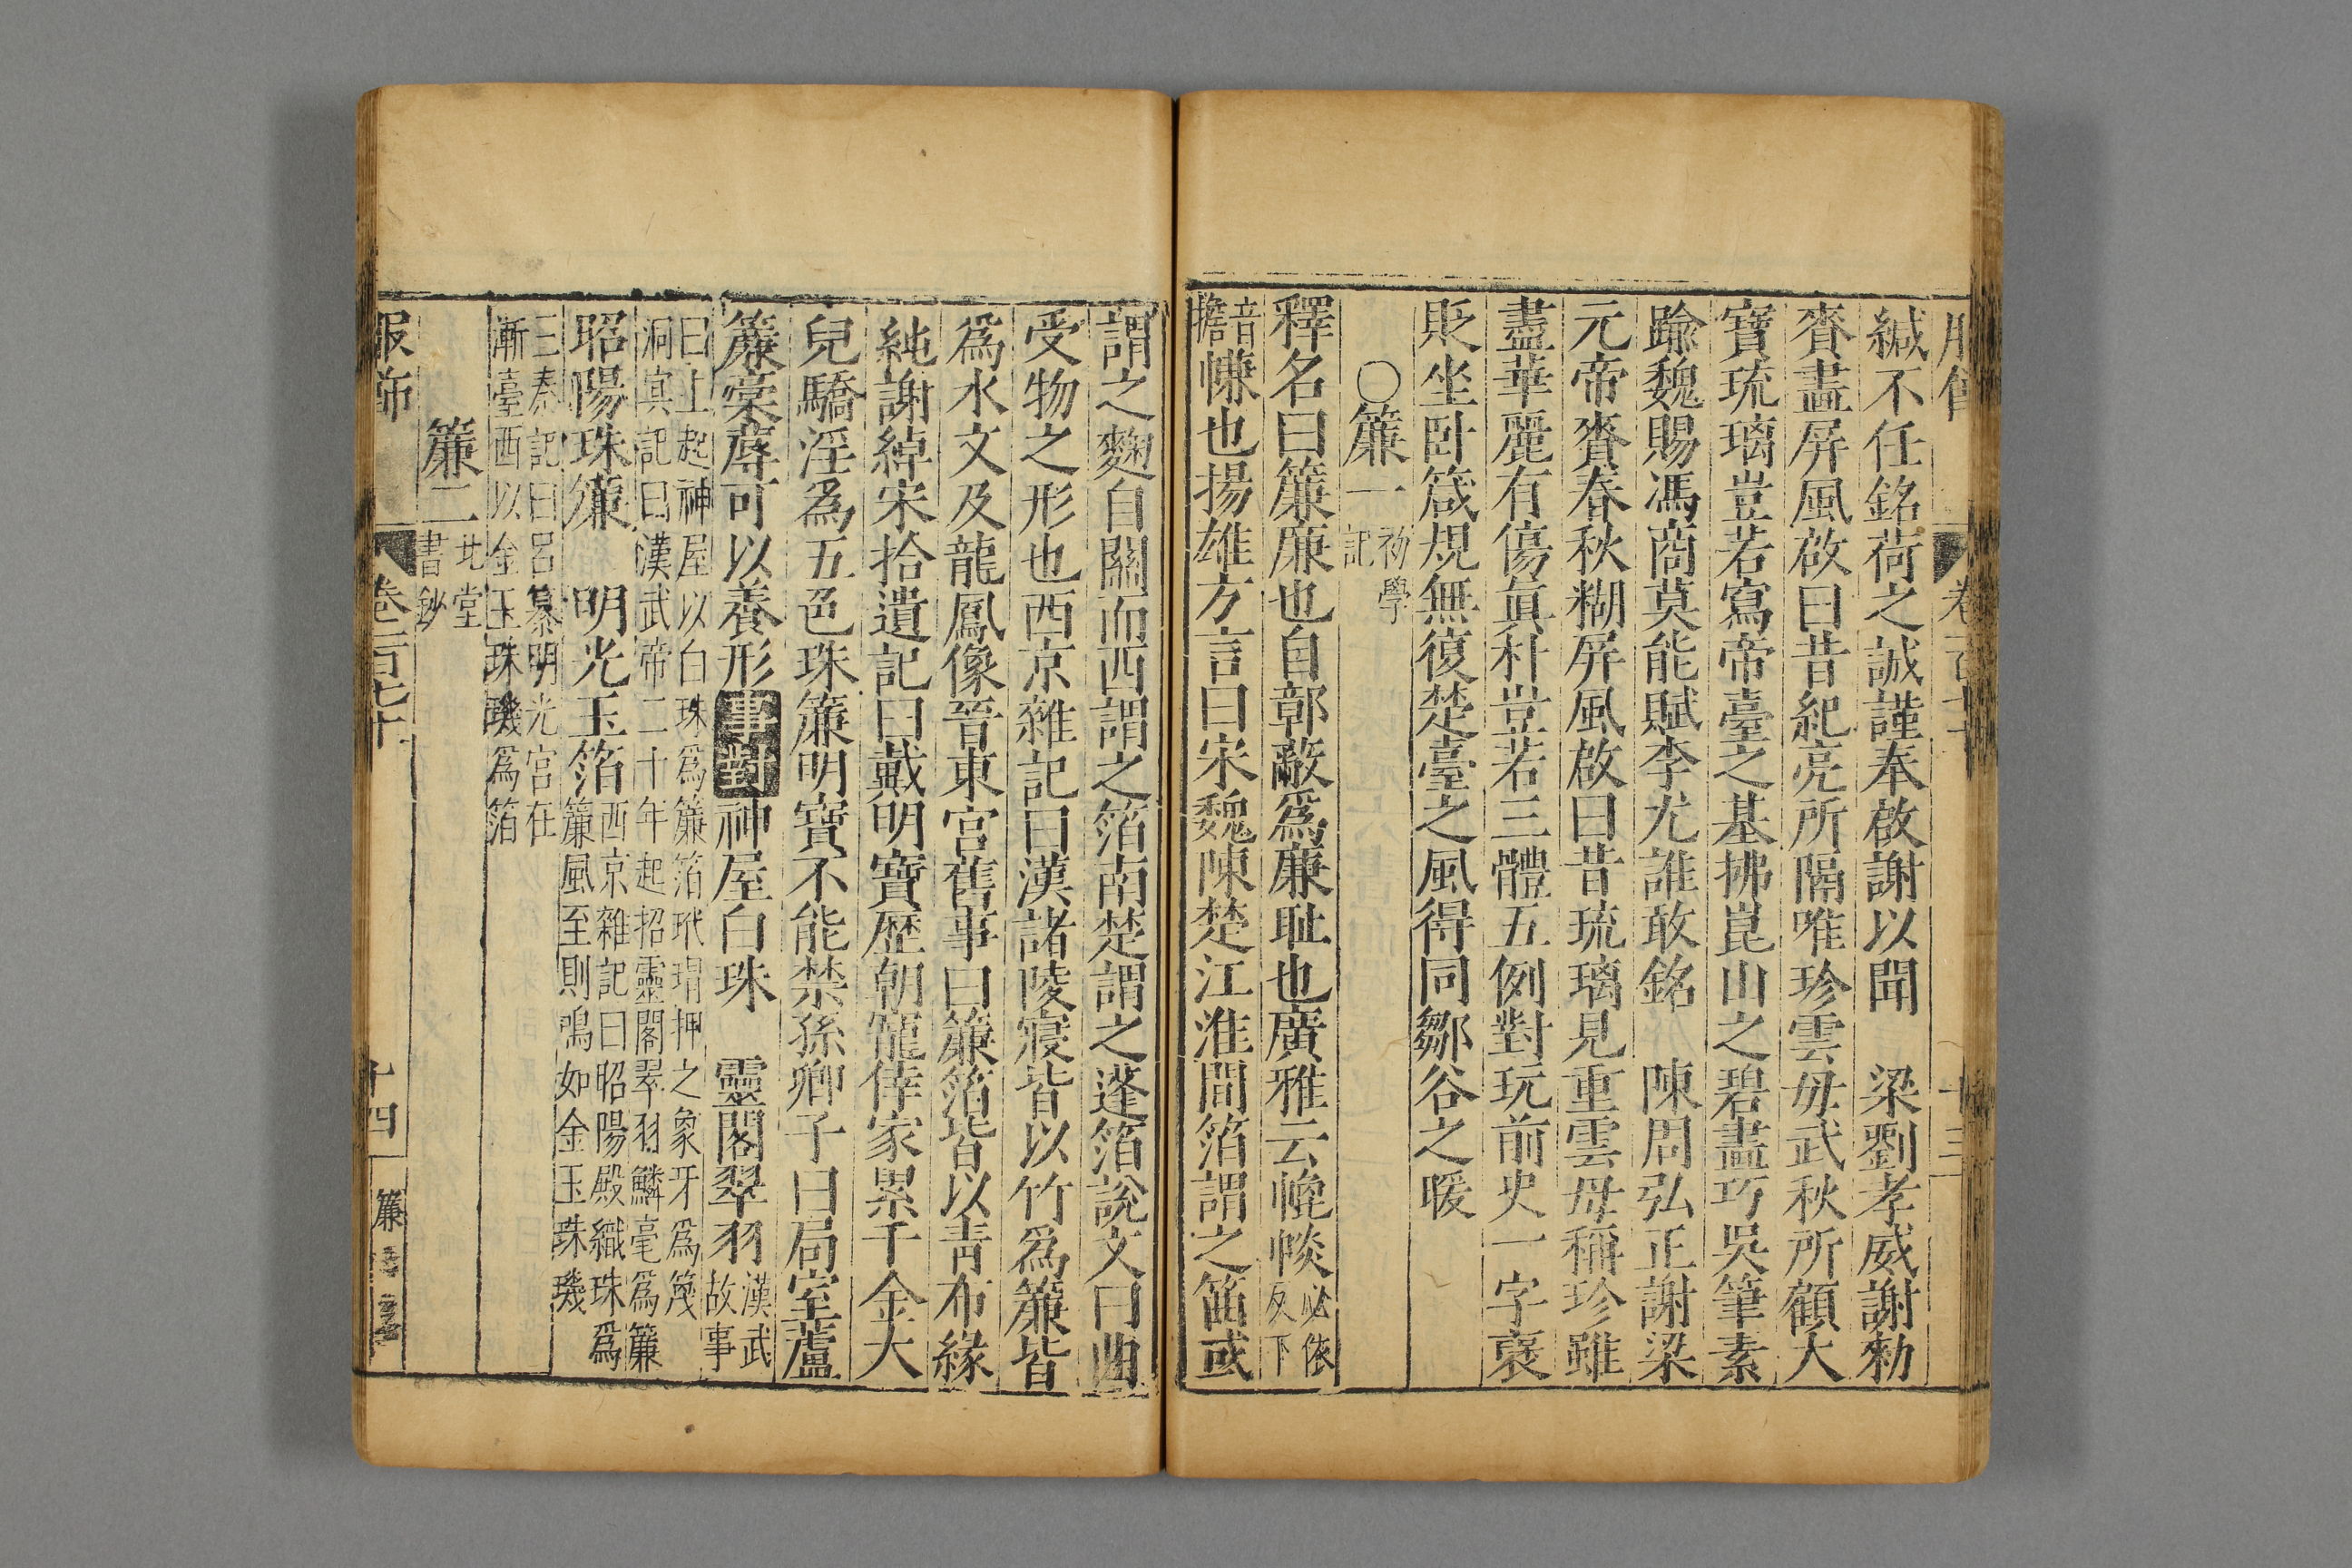 緘不任銘荷之誠謹奉啟謝以聞　梁劉孝威謝勑
賚畫屏風啟曰昔紀亮所隔唯珍雲毋武秋所顧大
寶琉璃豈若寫帝臺之基拂崑山之碧畫巧吳筆素
踰魏賜馮商莫能賦李尤誰敢銘　陳周弘正謝梁
元帝賚春秋糊屏風啟曰昔琉璃見重雲母稱珍雖
盡華麗有傷眞朴豈若三體五例對玩前史一字褒
貶坐卧箴規無復楚臺之風得同鄒谷之暖
○簾一初學記
釋名曰簾廉也自鄣蔽爲廉耻也廣雅云㡈㡘必依反下
音擔幨也揚雄方言曰宋魏陳楚江淮間箔謂之笛或
謂之麴自關而西謂之箔南楚謂之蓬箔說文曰曲
受物之形也西京雜記曰漢諸陵寢皆以竹爲簾皆
爲水文及龍鳳像晉東宮舊事曰簾箔皆以靑布緣
純謝綽宋拾遺記曰戴明寶歷朝寵倖家累千金大
兒驕淫爲五色珠簾明寶不能禁孫卿子曰局室蘆
簾藁蓐可以養形事對神屋白珠　靈閣翠羽漢武故事
曰上起神屋以白珠爲簾箔玳瑁押之象牙爲篾
洞冥記曰漢武帝二十年起招靈閣翠羽鱗毫爲簾
昭陽珠簾　明光玉箔西京雜記曰昭陽殿織珠爲簾風至則鳴如金玉珠璣
三秦記曰呂纂明光宮在
漸臺西以金玉珠璣爲箔
簾二北堂書鈔
服飾　卷三百七十　十四　簾